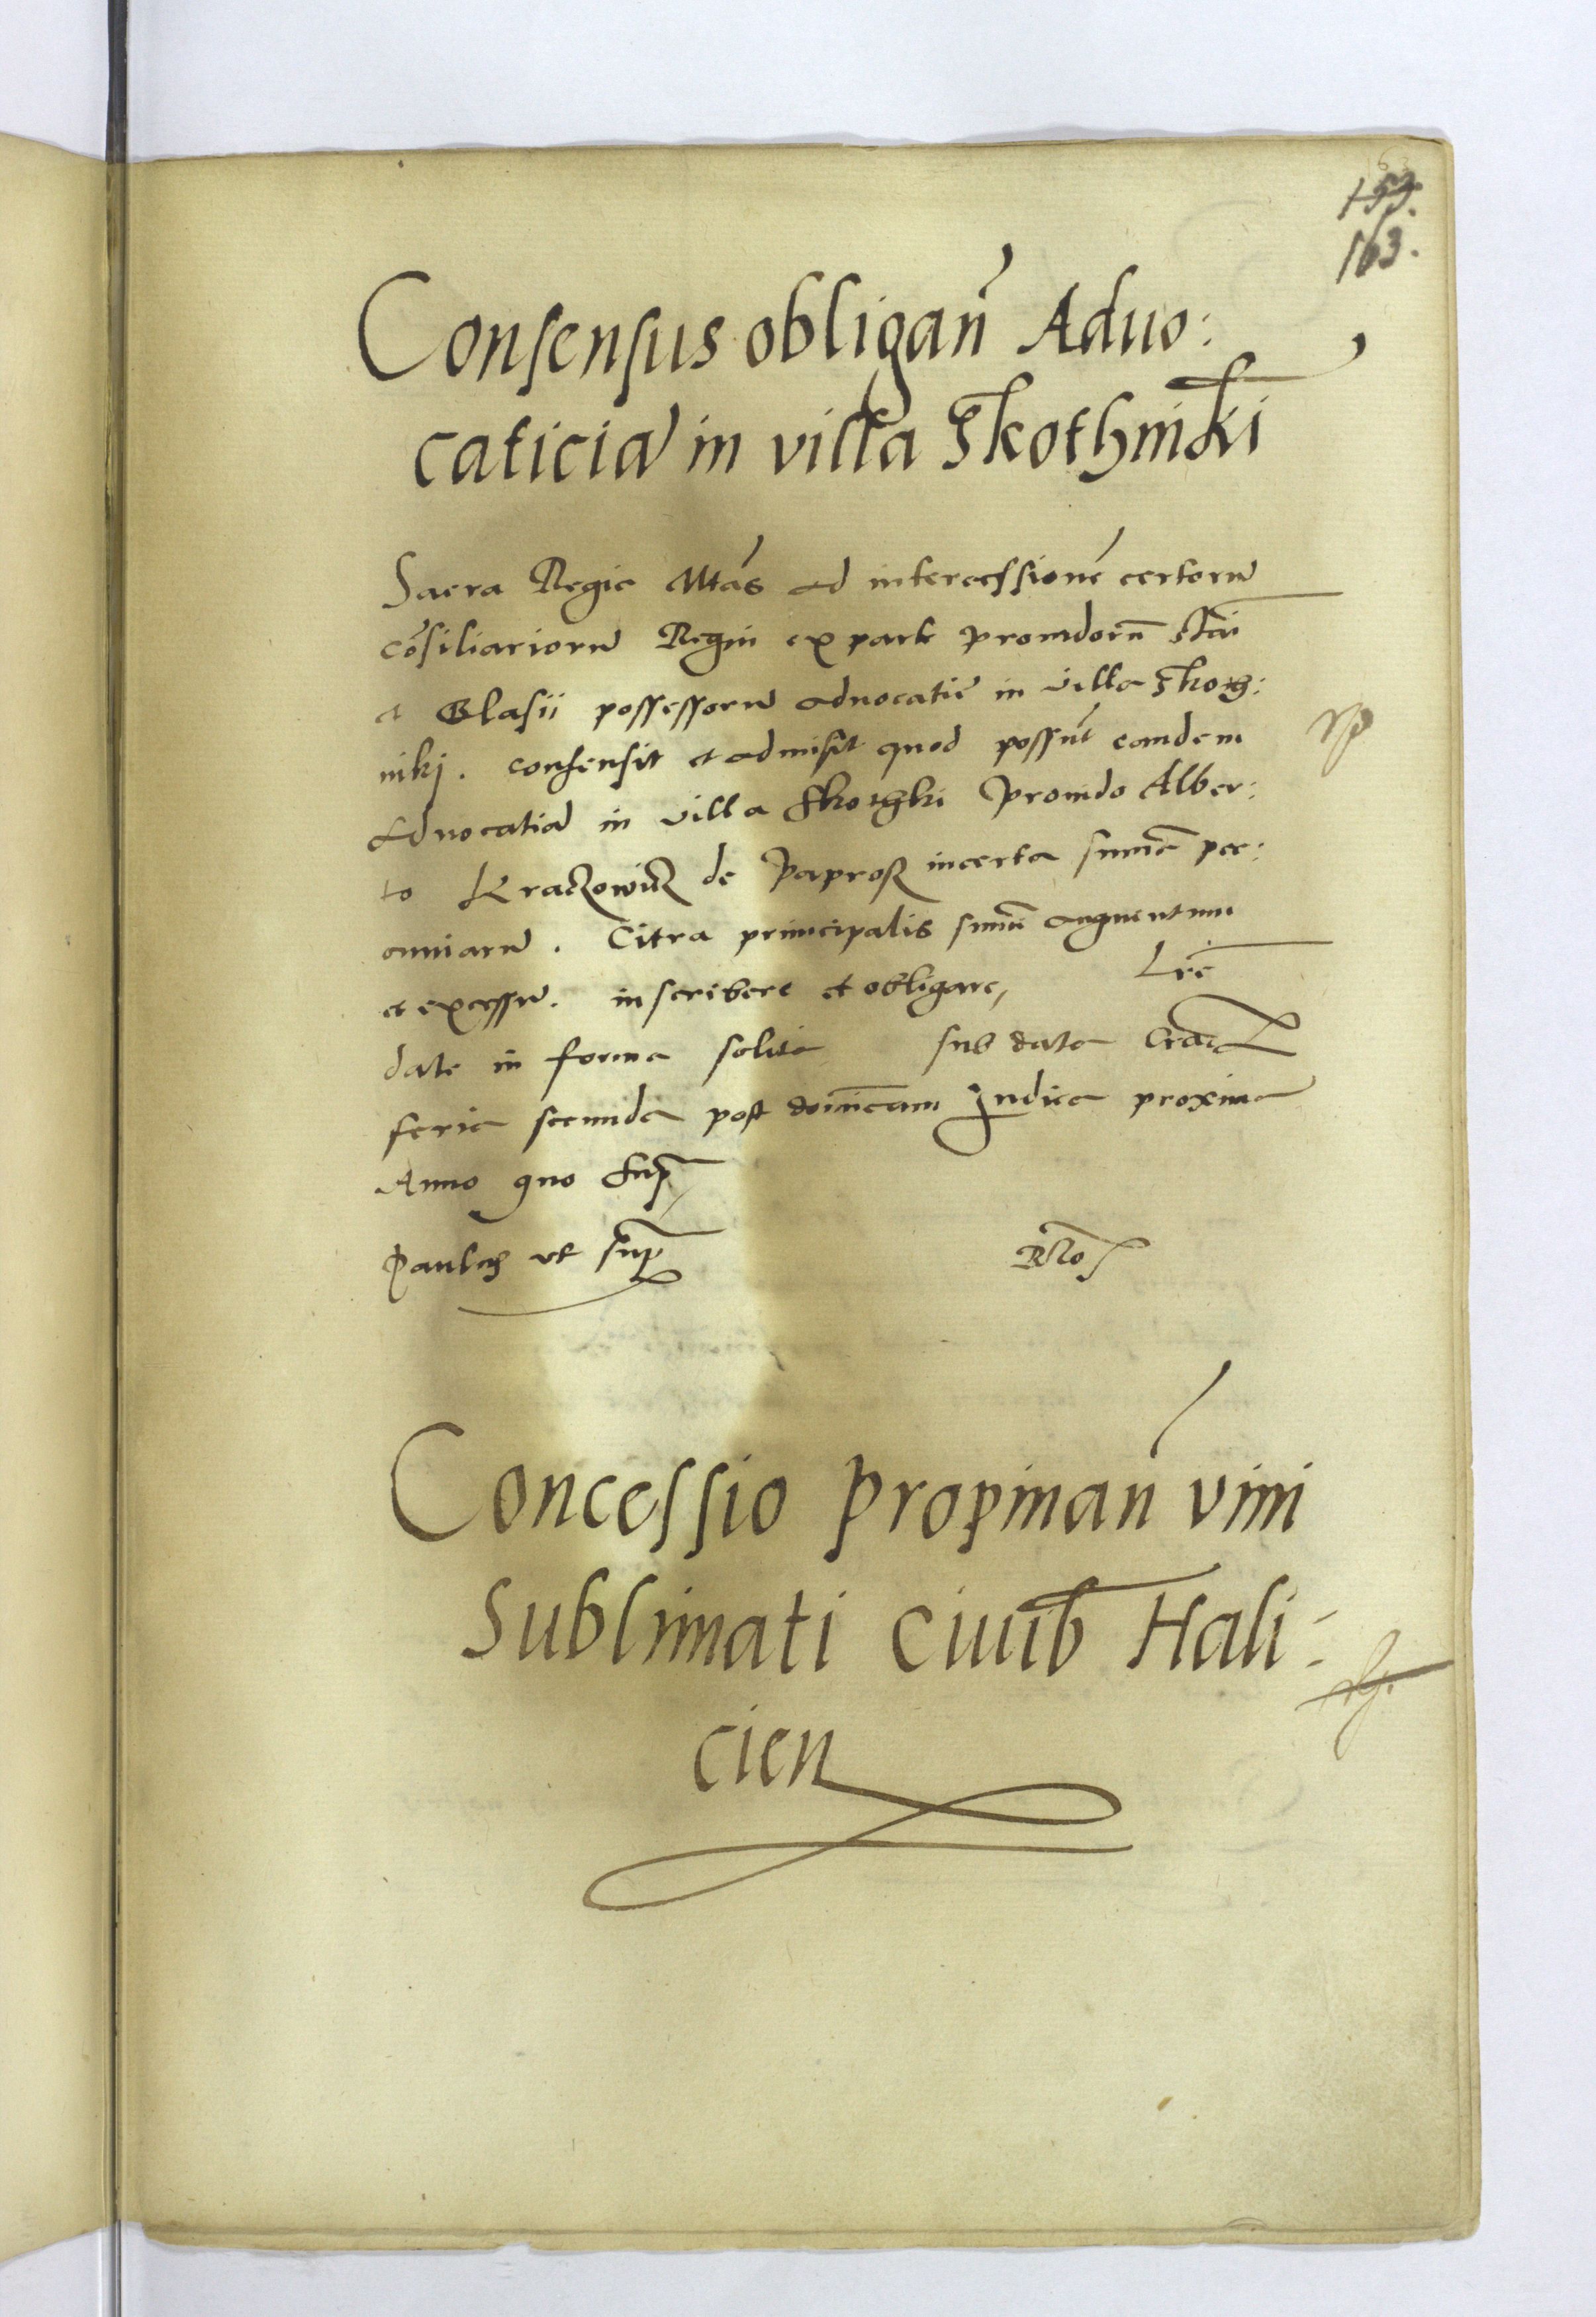 153.
163.
Consensus obligan̄ Aduo:
caticiā in villa Skothniki
Sacra Regia Mtas ad intercessionē certorū
cōsiliariorū Regni ex parte prouidorū Stāi
et Blasii possessorū aduocatiē in villa Skoth:
niki. consensit et admisit quod possūt eandem
Aduocatiā in villa Skothki prouido Alber:
to Kraczowicz de Paprosz in certa sūma pec:
cuniarū. Citra principalis sūmē augmentum
et excessū. inscribere et obligare, Lrē
date in forma solita sub data Crac
feria secunda post dominicam Judica proxima
Anno quo sup
Paulus vt sup
Concessio propinan̄ vini
Sublimati Ciuib Hali:
cien